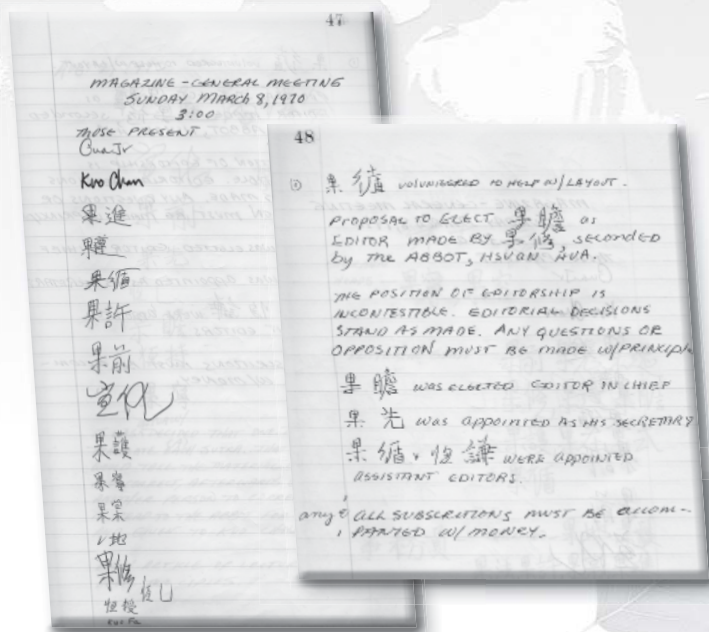 47
MAGAZINE - GENERAL MEETING
SUNDAY MARCH 8, 1970
3:00
THOSE PRESENT
Kuo Chan
果進
果循
果許
果前
宣化
果護
果寧
果修 恆
恆授
48
① 果循 VOLUNTEERED TO HELP W/ LAYOUT.
PROPOSAL TO ELECT 果瞻 as
EDITOR MADE BY 果修, SECONDED
by THE ABBOT, HSUAN HUA.
THE POSITION OF EDITORSHIP IS
INCONTESTIBLE. EDITORIAL DECISIONS
STAND AS MADE. ANY QUESTIONS OR
OPPOSITION MUST BE MADE W/PRINCIPL
果瞻 was ELECTED EDITOR IN CHIEF
果先 was appointed AS HIS SECRETARY
果循 恆謙 WERE APPOINTED
ASSISTANT EDITORS.
any ALL SUBSCRITIONS MUST BE accom-
PANIED W/ MONEY.